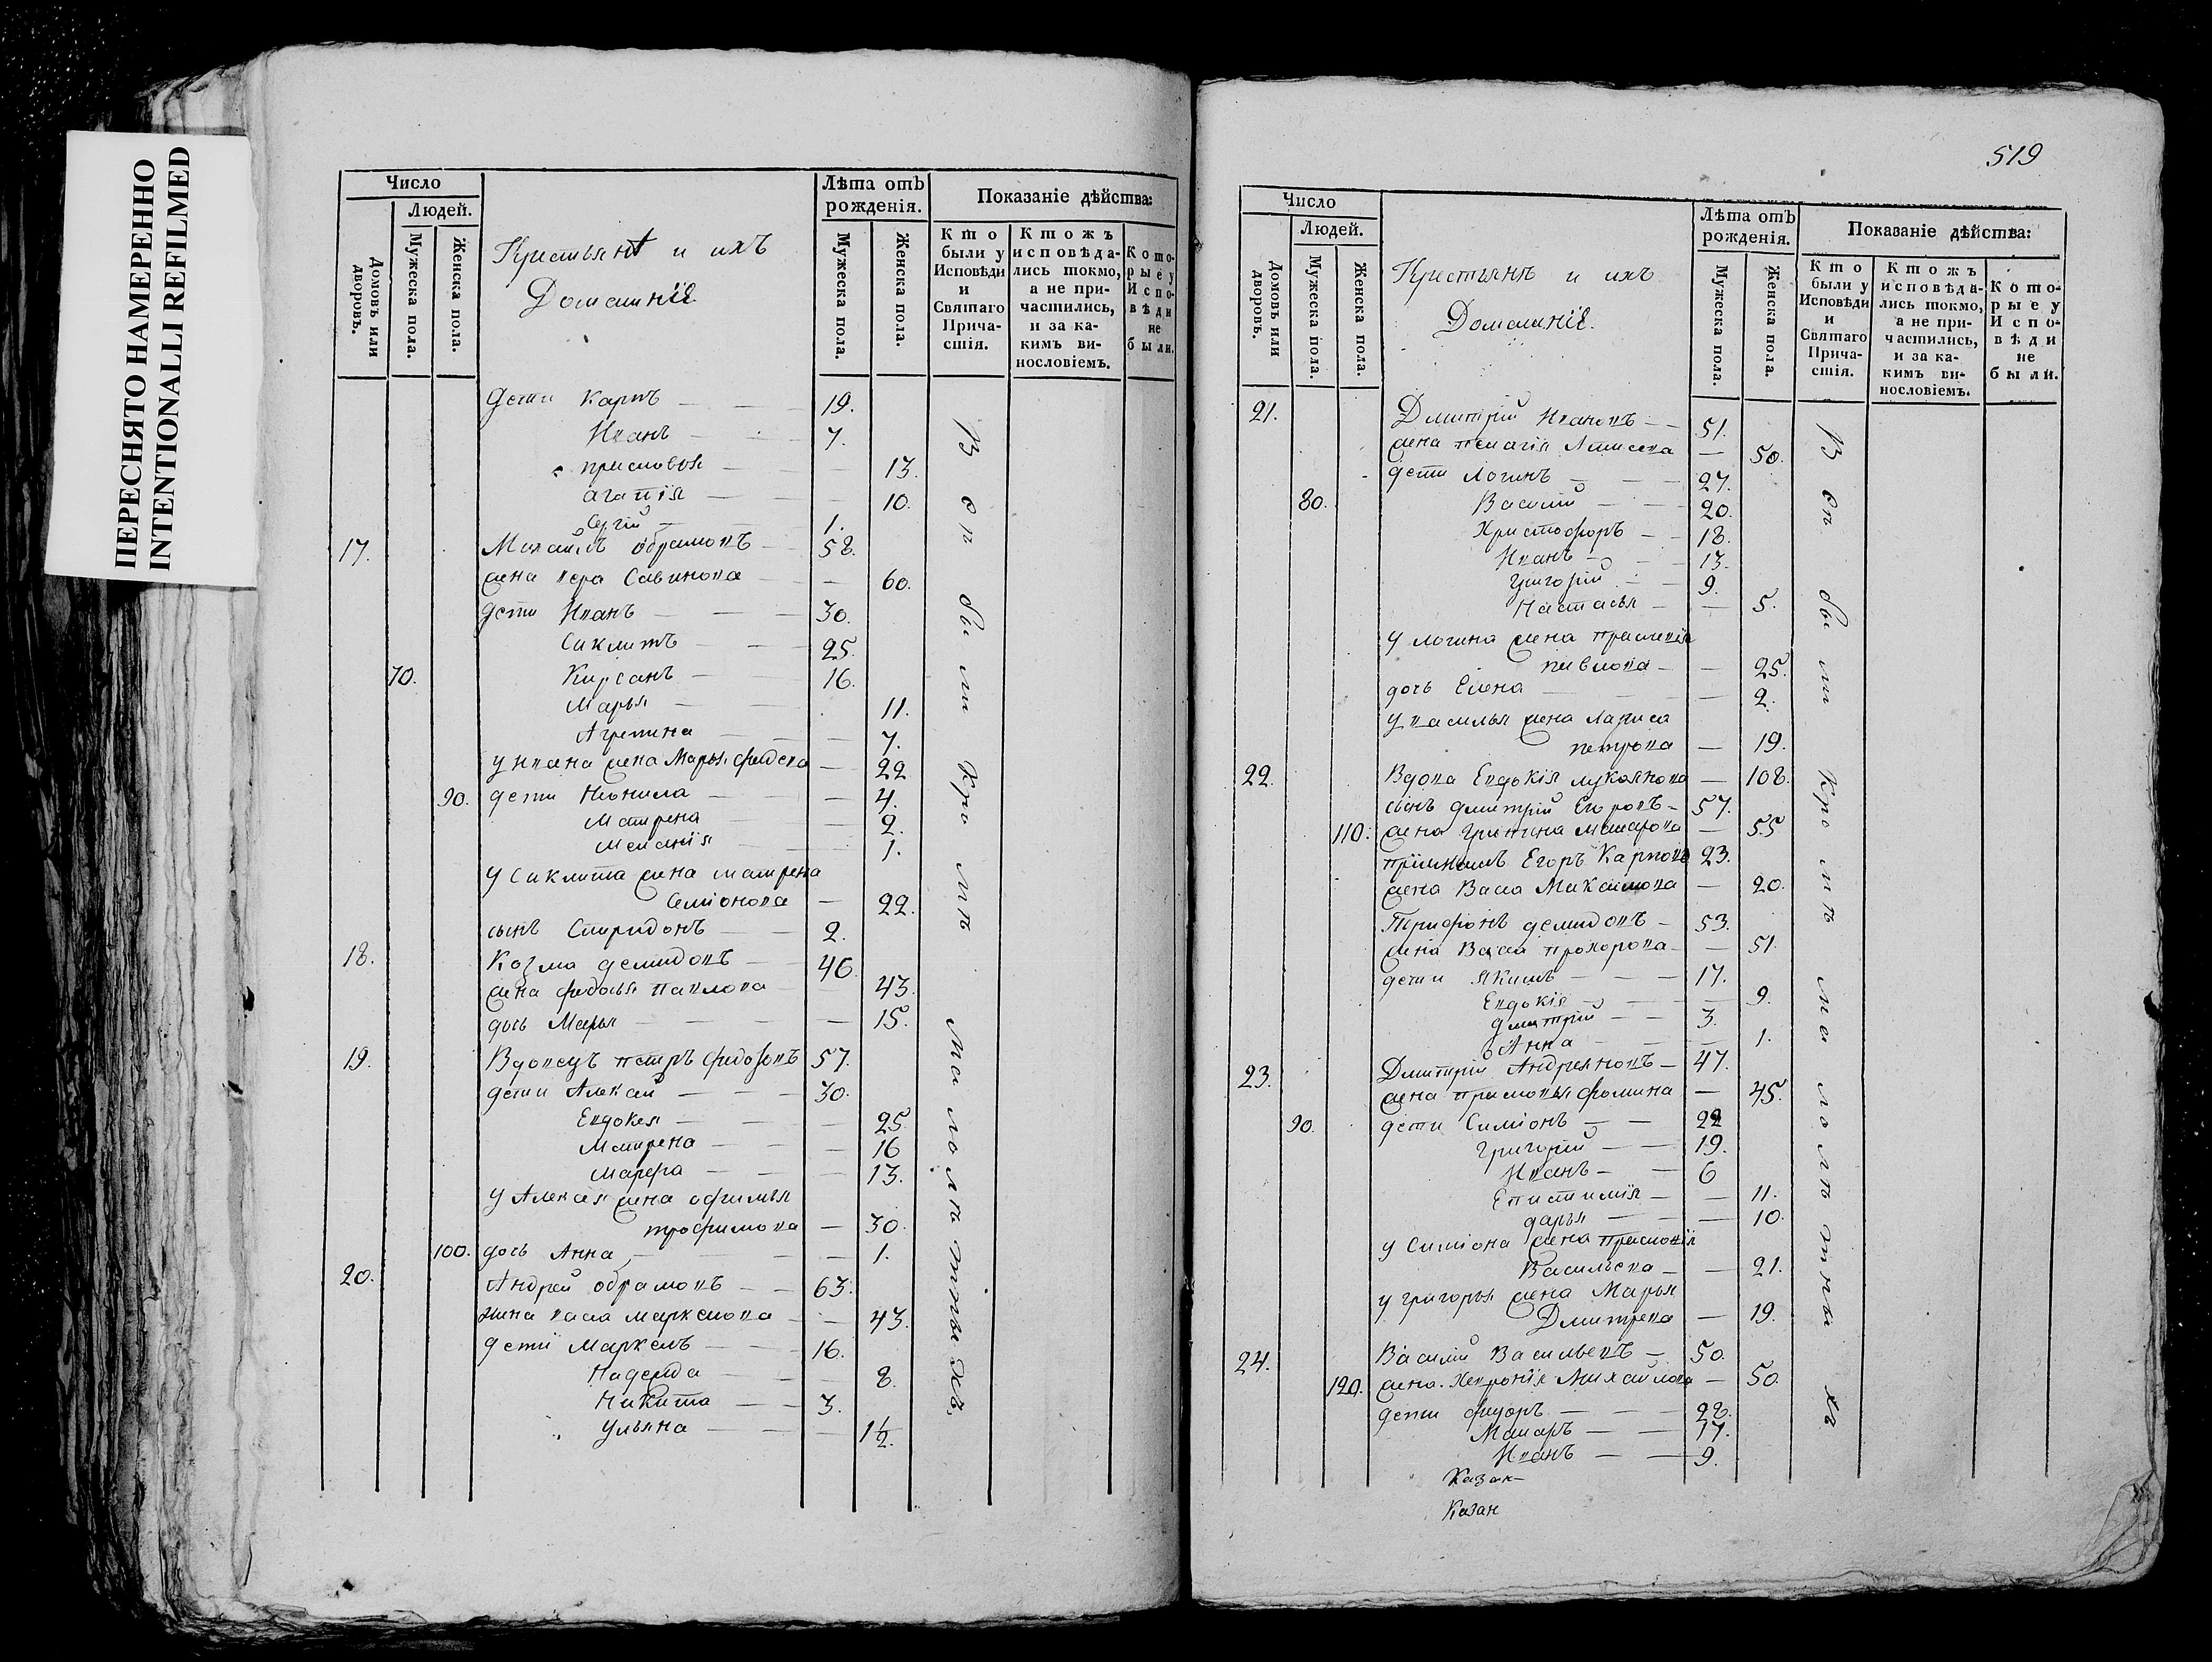 ПЕРЕСНЯТО НАМЕРЕННО
INTENTIONALLI REFILMED
Число
Людей.
Домовъ или дворовъ.
Мужеска пола.
Женска пола.
Крестьянѣ и ихъ
Домашніе
Лѣта отъ рожденія.
Мужеска пола.
Женска пола.
Показаніе дѣйства:
Кто были у Исповѣди и Святаго Причастія.
Ктожъ исповѣдались токмо, а не причастились, и за какимъ винословіемъ.
Которые у Исповѣди не были.
дети Карпъ — 19.
Иванъ — 7.
13.
агапія — 10.
Сергій — 1.
17. Михайлъ обрамовъ — 58.
жена вера Савинова — 60.
дети Иванъ — 30.
Сиклитъ — 25.
70. Кирсанъ — 16.
Марья — 11.
Агрепина — 7.
у Ивана жена Марья — 22
90. дети Неонила — 4.
Матрена — 2.
Меланія — 1.
у Сиклита жена матрена
Семіонова — 22.
сынъ Спиридонъ — 2.
18. Козма демидовъ — 46.
жена федосья павлова — 43.
дочь Марья — 15.
19. Вдовецъ петръ 57.
дети Алексей — 30.
Евдокея — 25.
Матрена — 16
марфа — 13.
у Алексея жена офимья
трофимова — 30.
100. дочь Анна — 1.
20. Андрей обрамовъ — 63.
жена васа маркелова — 43.
дети Маркелъ — 16.
Надежда — 8.
Никита — 3.
Ульяна — 1½.
Вси были кроме малолетныхъ.
519
Число
Людей.
Домовъ или дворовъ.
Мужеска пола.
Женска пола.
Крестьянѣ и ихъ
Домашніе.
Лѣта отъ рожденія.
Мужеска пола.
Женска пола.
Показаніе дѣйства:
Кто были у Исповѣди и Святаго Причастія.
Ктожъ исповѣдались токмо, а не причастились, и за какимъ винословіемъ.
Которые у Исповѣди не были.
21. Дмитрій Ивановъ — 51.
жена пелагія — 50.
дети Логинъ — 27.
80. Василій — 20.
Христофоръ — 18.
Иванъ — 13.
Григорій — 9.
Настасья — 5.
у логина жена
павлова — 25.
дочь Елена — 2.
у василья жена
петрова — 19.
22. Вдова Евдокія лукоянова — 108.
сынъ дмитрій Егоровъ — 57.
110. жена — 55
Егоръ Карповъ 23.
жена Васа Максимова — 20.
Трифонъ демидовъ — 53.
жена Васа прохорова — 51.
дети якимъ — 17.
Евдокія — 9.
дмитрій — 3.
Анна — 1.
23. Дмитрій Андреяновъ — 47.
жена фомина — 45.
90. дети Симіонъ — 22
Григорій — 19.
Иванъ — 6
Епистимія — 11.
дарья — 10.
у Симіона жена
Васильева — 21.
у григорья жена Марья
Дмитрева — 19.
24. Василій Васильевъ — 50.
120. жена Михайлова — 50.
дети федоръ — 28.
Макаръ — 17.
Иванъ — 9.
Казан
Казан
Вси были кроме малолетныхъ